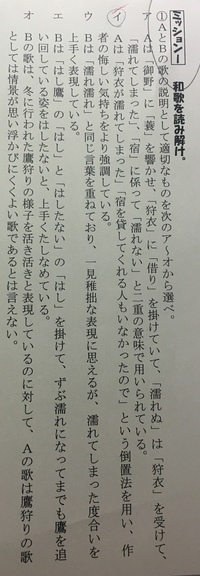 ミッションⅠ 和歌を読み解け。
①AとBの歌の説明として適切なものを次のア～オから選べ。
ア Aは「御野」に「蓑」を響かせ、「狩衣」に「借り」を掛けていて、「濡れぬ」は「狩衣」を受けて、
「濡れてしまった」、「宿」に係って「濡れない」と二重の意味で用いられている。
イ Aは「狩衣が濡れてしまった」「宿を貸してくれる人もいなかったので」という倒置法を用い、作
者の悔しい気持ちをより強調している。
ウ Bは「濡れ濡れ」と同じ言葉を重ねており、一見稚拙な表現に思えるが、濡れてしまった度合いを
上手く表現している。
エ Bは「はし鷹」の「はし」と「はしたない」の「はし」を掛けて、ずぶ濡れになってまでも鷹を追
い回している姿をはしたないと、上手くたしなめている。
オ Bの歌は、冬に行われた鷹狩りの様子を活き活きと表現しているのに対して、Aの歌は鷹狩りの歌
としては情景が思い浮かびにくく良い歌であるとは言えない。